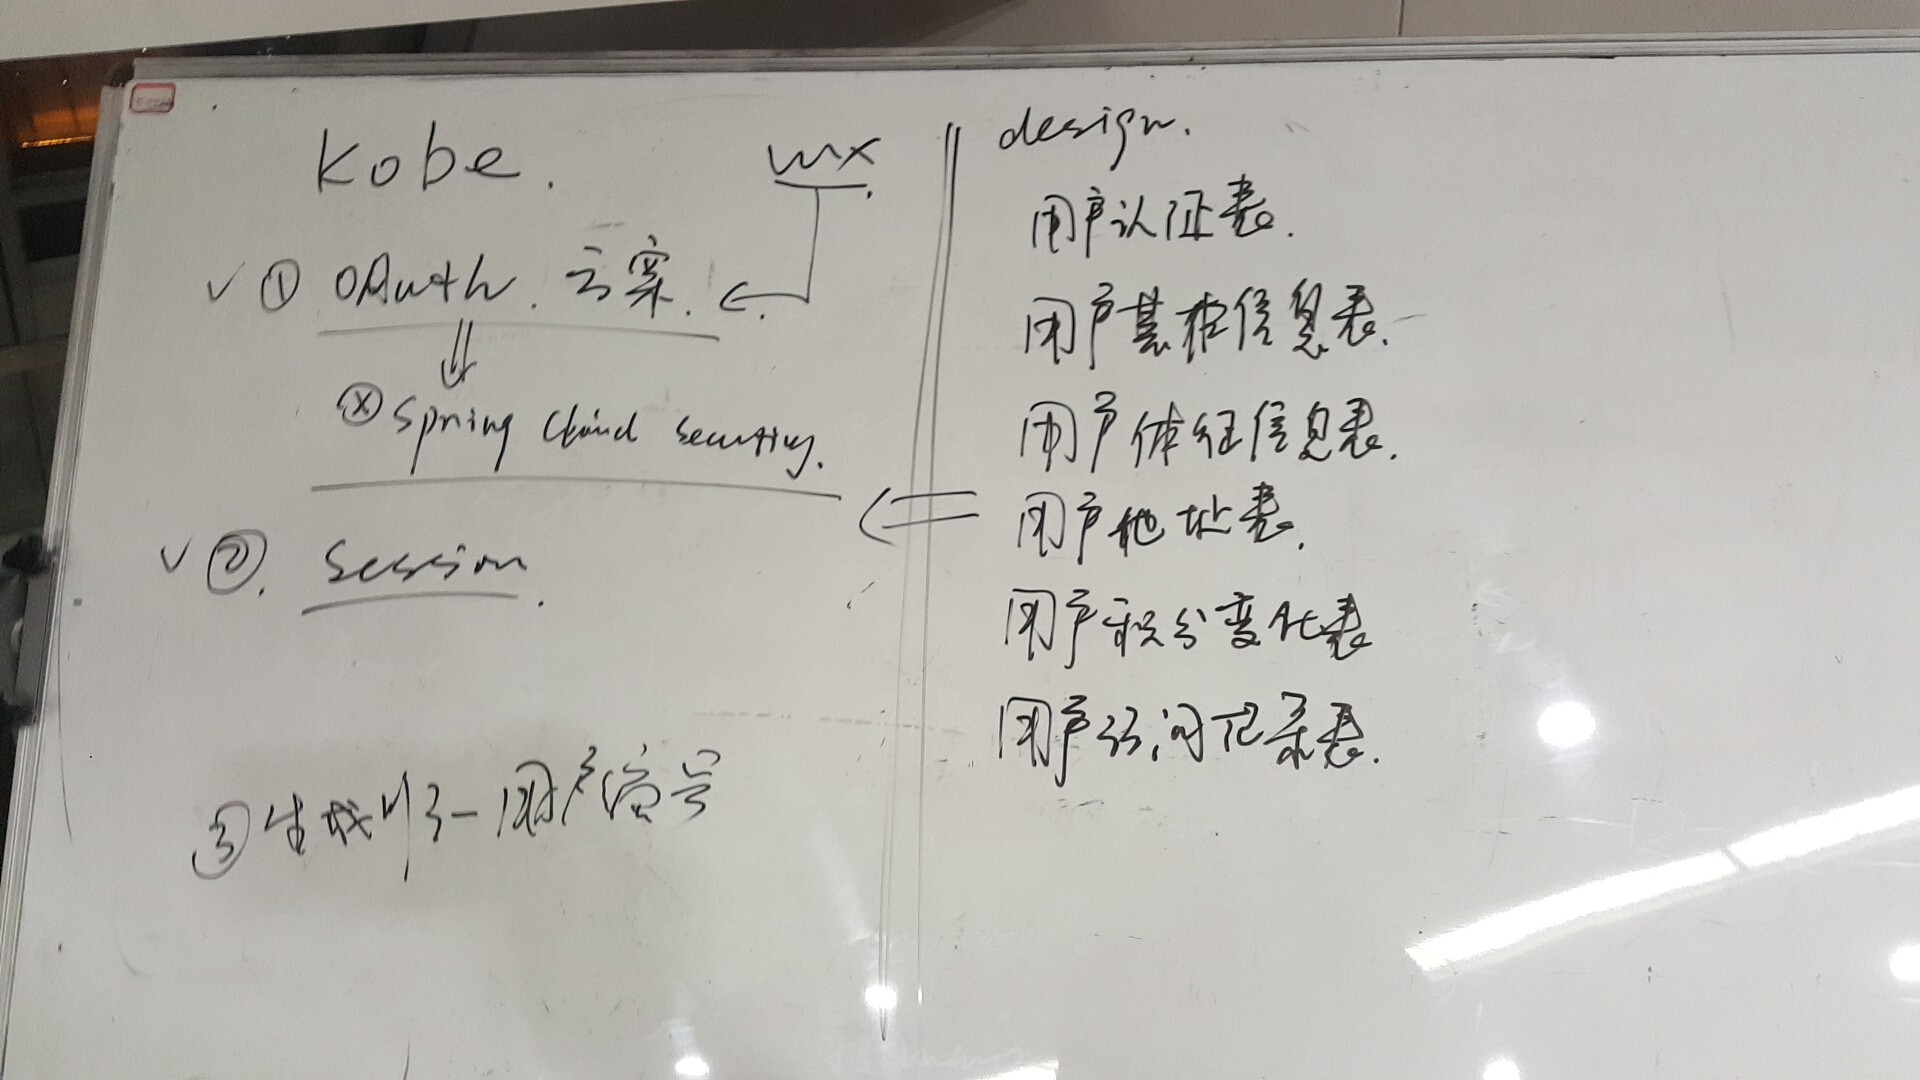 Kobe.
wx
① OAuth. 方案.
ⓧ Spring Cloud Security.
②. Session.
③ 生成唯一用户编号
design.
用户认证表.
用户基本信息表.
用户体征信息表.
用户地址表.
用户积分变化表
用户访问记录表.